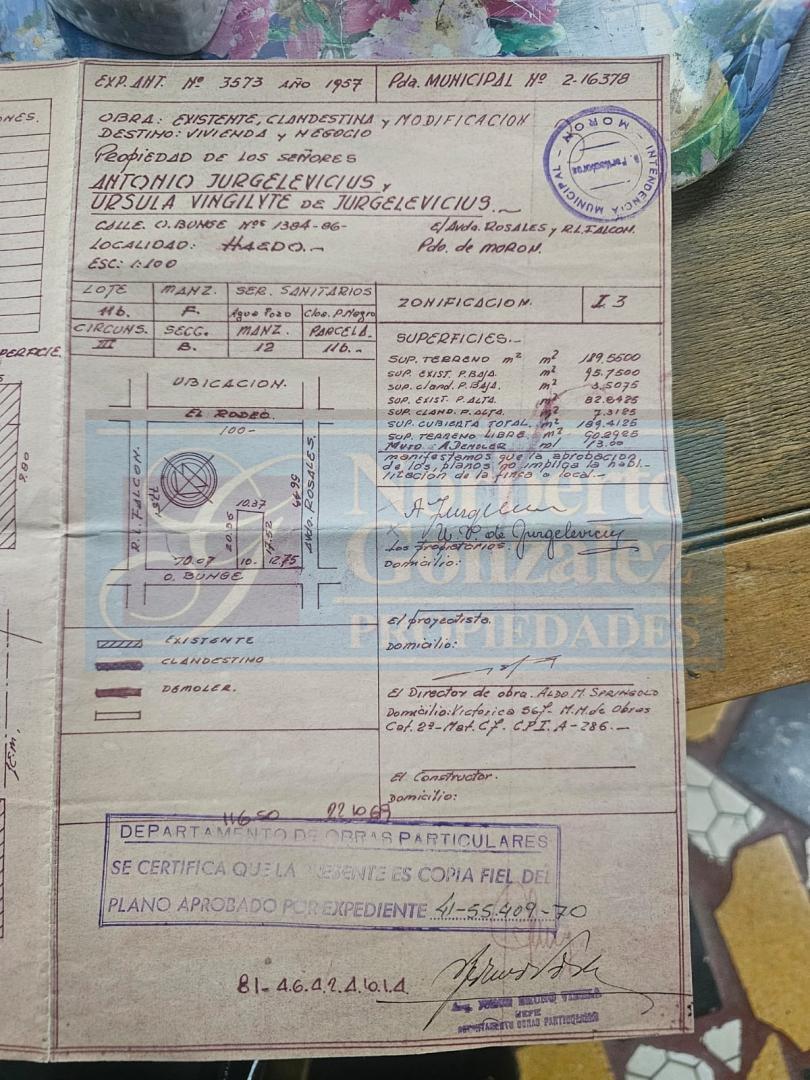 EXP. ANT. Nº 3573 AÑO 1957
Pda. MUNICIPAL Nº 2-16378
NES.
OBRA: EXISTENTE, CLANDESTINA y MODIFICACION
DESTINO: VIVIENDA y NEGOCIO
PROPIEDAD DE LOS SEÑORES
ANTONIO JURGELEVICIUS y
URSULA VINGILYTE DE JURGELEVICIUS.
CALLE. O. BUNGE Nºs 1384-86-
E/Avda. ROSALES y R.L. FALCON.
LOCALIDAD: HAEDO.-
Pdo. de MORON.
ESC: 1:100
INTENDENCIA MUNICIPAL
- MORON -
LOTE MANZ. SER. SANITARIOS
11b. F. Agua Pozo Cloa. P. Negro
CIRCUNS. SECC. MANZ. PARCELA.
III B. 12 11b.-
ZONIFICACION. I 3
PERFICIE.
SUPERFICIES.-
SUP. TERRENO m² m² 189.5500
SUP. EXIST. P. BAJA. m² 95.7500
SUP. cland. P. BAJA. m² 3.5075
SUP. EXIST. P. ALTA. m² 82.8425
SUP. CLAND. P. ALTA. m² 7.3125
SUP. CUBIERTA TOTAL. m² 189.4125
SUP. TERRENO LIBRE. m² 90.2925
MURO A DEMOLER. ml 13.00
manifestamos que la aprobación
de los planos no implica la habi-
litación de la finca o local.-
UBICACION.
EL RODEO.
100-
R.L. FALCON.
Avda. ROSALES.
10.37
20.35
14.52
70.07 10.- 12.75
O. BUNGE
2.80
A Jurgelevicius
U. V. de Jurgelevicius
Los propietarios.
Domicilio:
El proyectista.
Domicilio:
EXISTENTE
CLANDESTINO
DEMOLER.
El Director de obra. ALDO M. SPRINGOLO
Domicilio: Victorica 567- M.M. de Obras
Cat. 2ª- Mat. C.7. C.P.I. A-286.-
El Constructor.
Domicilio:
Norberto
González
PROPIEDADES
11650 22 10 69
DEPARTAMENTO DE OBRAS PARTICULARES
SE CERTIFICA QUE LA PRESENTE ES COPIA FIEL DEL
PLANO APROBADO POR EXPEDIENTE 41-55.409-70
81-4.6.4.2.4.10.1.4.
JEFE
DEPARTAMENTO OBRAS PARTICULARES